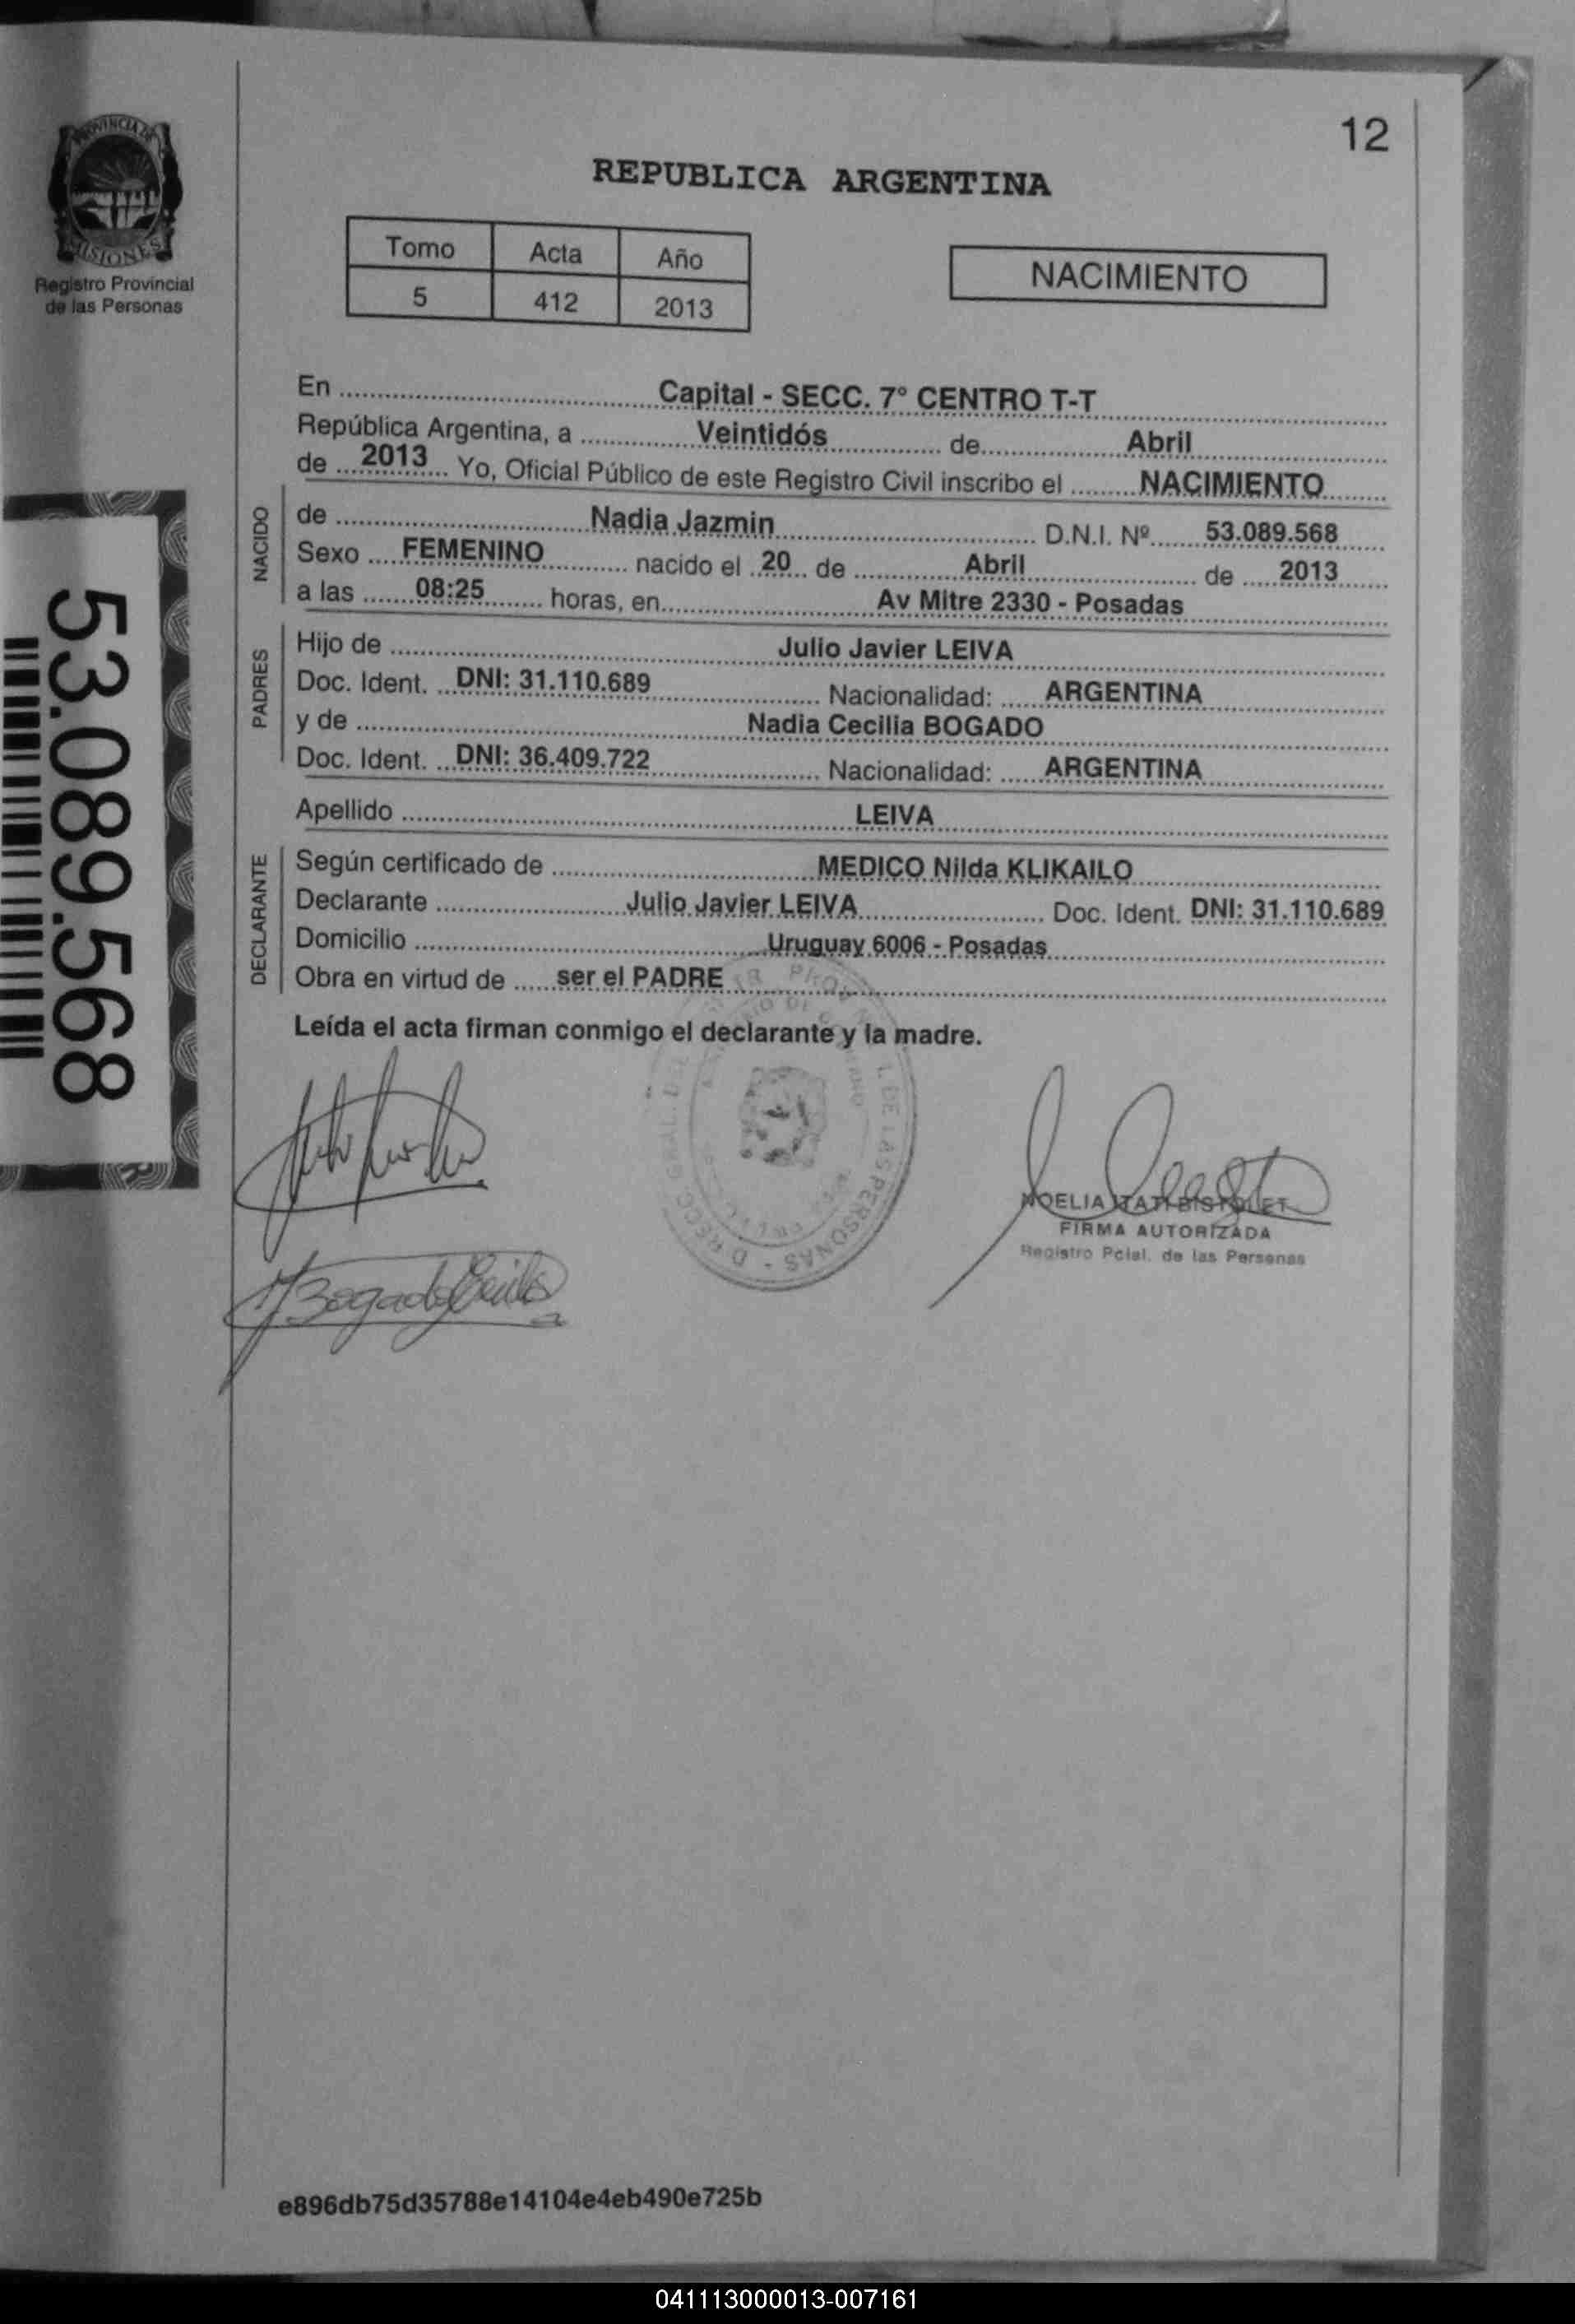 12
PROVINCIA DE
MISIONES
Registro Provincial
de las Personas
REPUBLICA ARGENTINA
Tomo Acta Año
5 412 2013
NACIMIENTO
En Capital - SECC. 7° CENTRO T-T
República Argentina, a Veintidós de Abril
de 2013 Yo, Oficial Público de este Registro Civil inscribo el NACIMIENTO
NACIDO
de Nadia Jazmin D.N.I. Nº 53.089.568
Sexo FEMENINO nacido el 20 de Abril de 2013
a las 08:25 horas, en Av Mitre 2330 - Posadas
PADRES
Hijo de Julio Javier LEIVA
Doc. Ident. DNI: 31.110.689 Nacionalidad: ARGENTINA
y de Nadia Cecilia BOGADO
Doc. Ident. DNI: 36.409.722 Nacionalidad: ARGENTINA
Apellido LEIVA
DECLARANTE
Según certificado de MEDICO Nilda KLIKAILO
Declarante Julio Javier LEIVA Doc. Ident. DNI: 31.110.689
Domicilio Uruguay 6006 - Posadas
Obra en virtud de ser el PADRE
Leída el acta firman conmigo el declarante y la madre.
53.089.568
DE LAS PERSONAS
Bogado Cecilia
NOELIA ITATI
FIRMA AUTORIZADA
Registro Pcial. de las Personas
e896db75d35788e14104e4eb490e725b
041113000013-007161